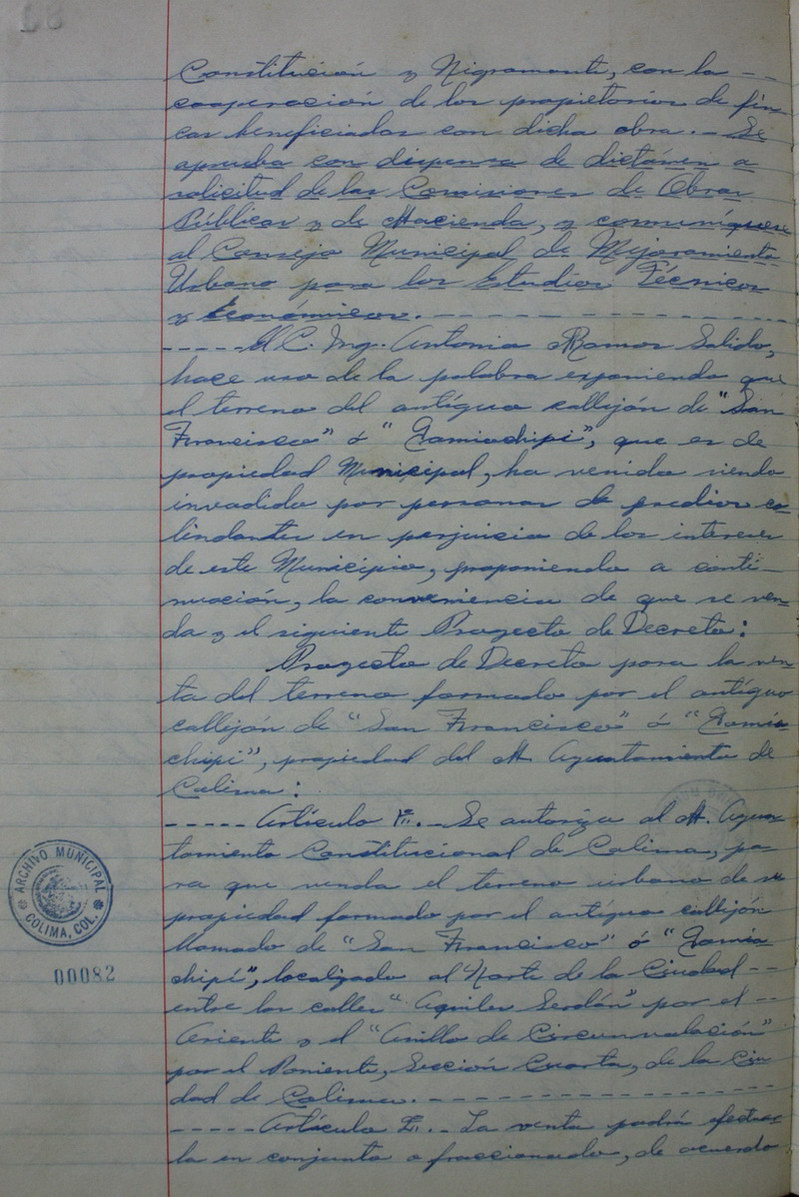 Constitución y Nigromante, con la --
cooperación de los propietarios de fin-
cas beneficiadas con dicha obra.- Se
aprueba con dispensa de dictámen a
solicitud de las Comisiones de Obras
Públicas y de Hacienda, y comuníquese
al Consejo Municipal de Mejoramiento
Urbano para los Estudios Técnicos
y Económicos.-
-----El C. Ing. Antonio Ramos Salido,
hace uso de la palabra exponiendo que
el terreno del antíguo callejón de "San
Francisco" ó "             ", que es de
propiedad Municipal, ha venido siendo
invadido por personas de predios co-
lindantes en perjuicio de los intereses
de este Municipio, proponiendo a conti-
nuación, la conveniencia de que se ven-
da y el siguiente Proyecto de Decreto:
Proyecto de Decreto para la ven-
ta del terreno formado por el antíguo
callejón de "San Francisco" ó "
chipi", propiedad del H. Ayuntamiento de
Colima:
-----Artículo 1º.- Se autoriza al H. Ayun-
tamiento Constitucional de Colima, pa-
ra que venda el terreno urbano de su
propiedad formado por el antíguo callejón
llamado de "San Francisco" ó "
chipi", localizado al Norte de la Ciudad --
entre las calles "Aquiles Serdán" por el --
Oriente y el "Anillo de Circunvalación"
por el Poniente, Sección Cuarta, de la Ciu-
dad de Colima.-
-----Artículo 2º.- La venta podrá efectuar
la en conjunto o fraccionado, de acuerdo
ARCHIVO MUNICIPAL
COLIMA, COL.
00082